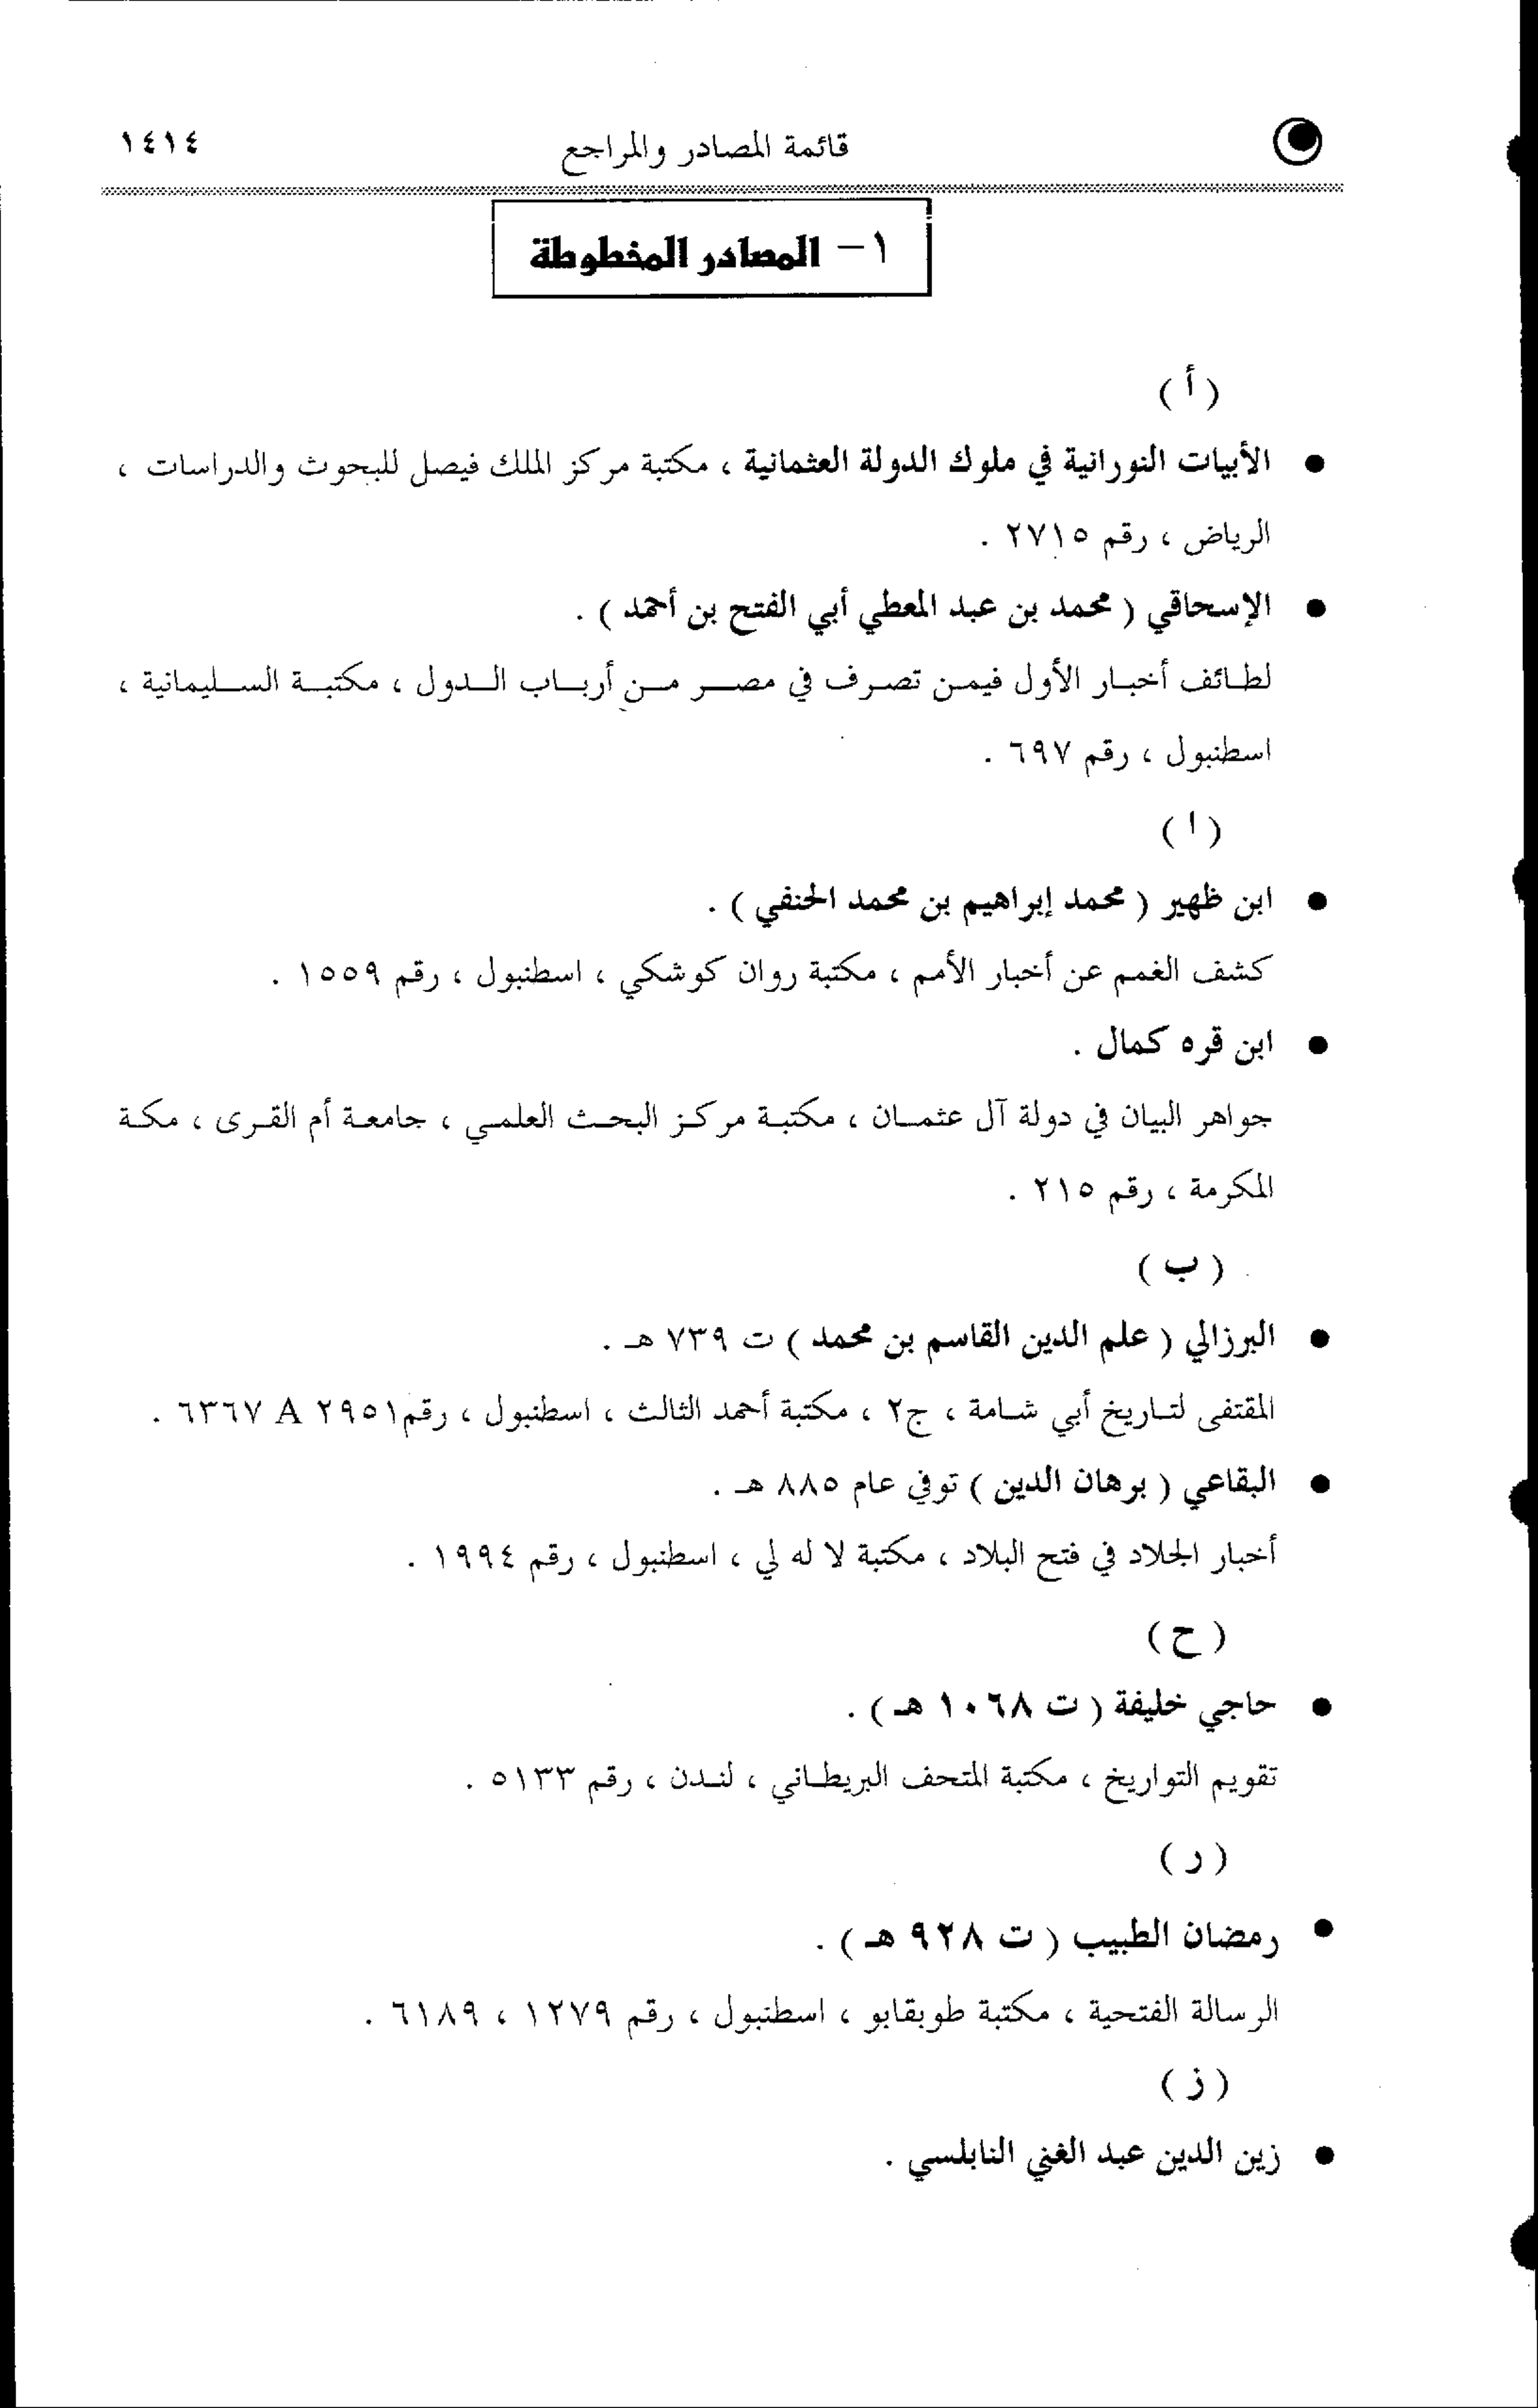 قائمة المصادر والمراجع ١٤١٤
١- المصادر المخطوطة
( أ )
● الأبيات النورانية في ملوك الدولة العثمانية ، مكتبة مركز الملك فيصل للبحوث والدراسات ،
الرياض ، رقم ٢٧١٥ .
● الإسحاقي ( محمد بن عبد المعطي أبي الفتح بن أحمد ) .
لطائف أخبار الأول فيمن تصرف في مصر من أرباب الدول ، مكتبة السليمانية ،
اسطنبول ، رقم ٦٩٧ .
( ا )
● ابن ظهير ( محمد إبراهيم بن محمد الحنفي ) .
كشف الغمم عن أخبار الأمم ، مكتبة روان كوشكي ، اسطنبول ، رقم ١٥٥٩ .
● ابن قره كمال .
جواهر البيان في دولة آل عثمان ، مكتبة مركز البحث العلمي ، جامعة أم القرى ، مكة
المكرمة ، رقم ٢١٥ .
( ب )
● البرزالي ( علم الدين القاسم بن محمد ) ت ٧٣٩ هـ .
المقتفى لتاريخ أبي شامة ، ج٢ ، مكتبة أحمد الثالث ، اسطنبول ، رقم٢٩٥١ A ٦٣٦٧ .
● البقاعي ( برهان الدين ) توفي عام ٨٨٥ هـ .
أخبار الجلاد في فتح البلاد ، مكتبة لا له لي ، اسطنبول ، رقم ١٩٩٤ .
( ح )
● حاجي خليفة ( ت ١٠٦٨ هـ ) .
تقويم التواريخ ، مكتبة المتحف البريطاني ، لندن ، رقم ٥١٣٣ .
( ر )
● رمضان الطبيب ( ت ٩٢٨ هـ ) .
الرسالة الفتحية ، مكتبة طوبقابو ، اسطنبول ، رقم ١٢٧٩ ، ٦١٨٩ .
( ز )
● زين الدين عبد الغني النابلسي .